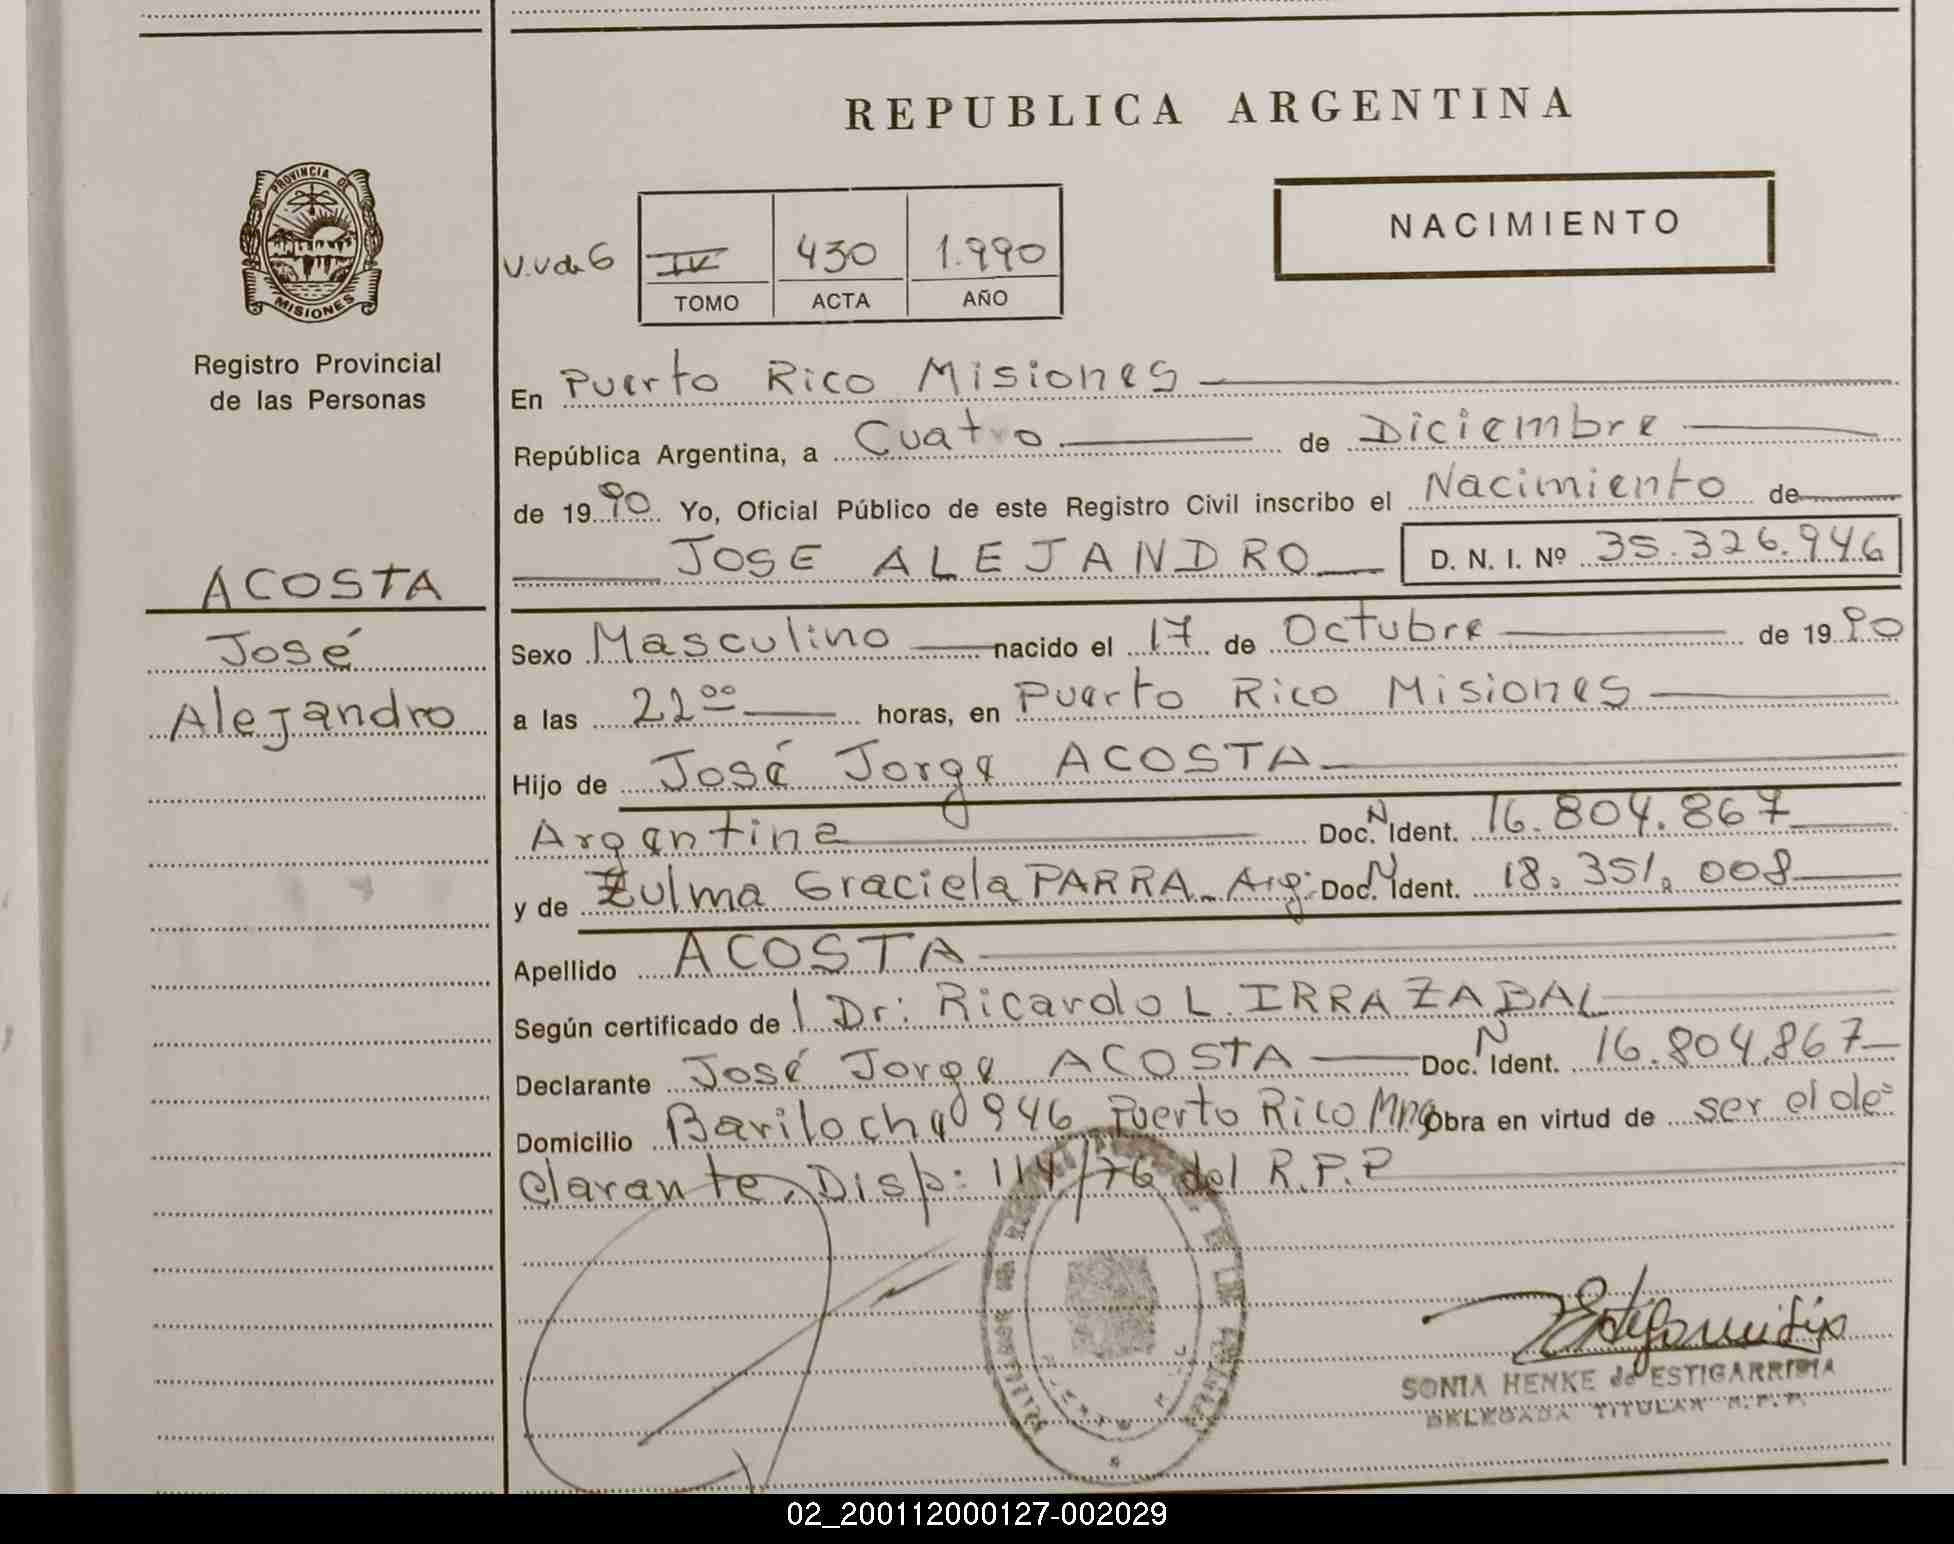 REPUBLICA ARGENTINA
PROVINCIA DE
MISIONES
Registro Provincial
de las Personas
ACOSTA
José
Alejandro
NACIMIENTO
IV 430 1.990
TOMO ACTA AÑO
En Puerto Rico Misiones
República Argentina, a Cuatro de Diciembre
de 1990 Yo, Oficial Público de este Registro Civil inscribo el Nacimiento de
JOSE ALEJANDRO D. N. I. Nº 35.326.946
Sexo Masculino nacido el 17 de Octubre de 1990
a las 22⁰⁰ horas, en Puerto Rico Misiones
Hijo de José Jorge ACOSTA
Argentina Doc. N Ident. 16.804.867
y de Zulma Graciela PARRA - Arg: Doc. N Ident. 18.351.008
Apellido ACOSTA
Según certificado de l Dr: Ricardo L. IRRAZABAL
Declarante José Jorge ACOSTA Doc. N Ident. 16.804.867
Domicilio Bariloche 946 Puerto Rico Mnes Obra en virtud de ser el de=
clarante. Disp: 114/76 del R.P.P
SONIA HENKE de ESTIGARRIBIA
DELEGADA TITULAR R.P.P.
02_200112000127-002029